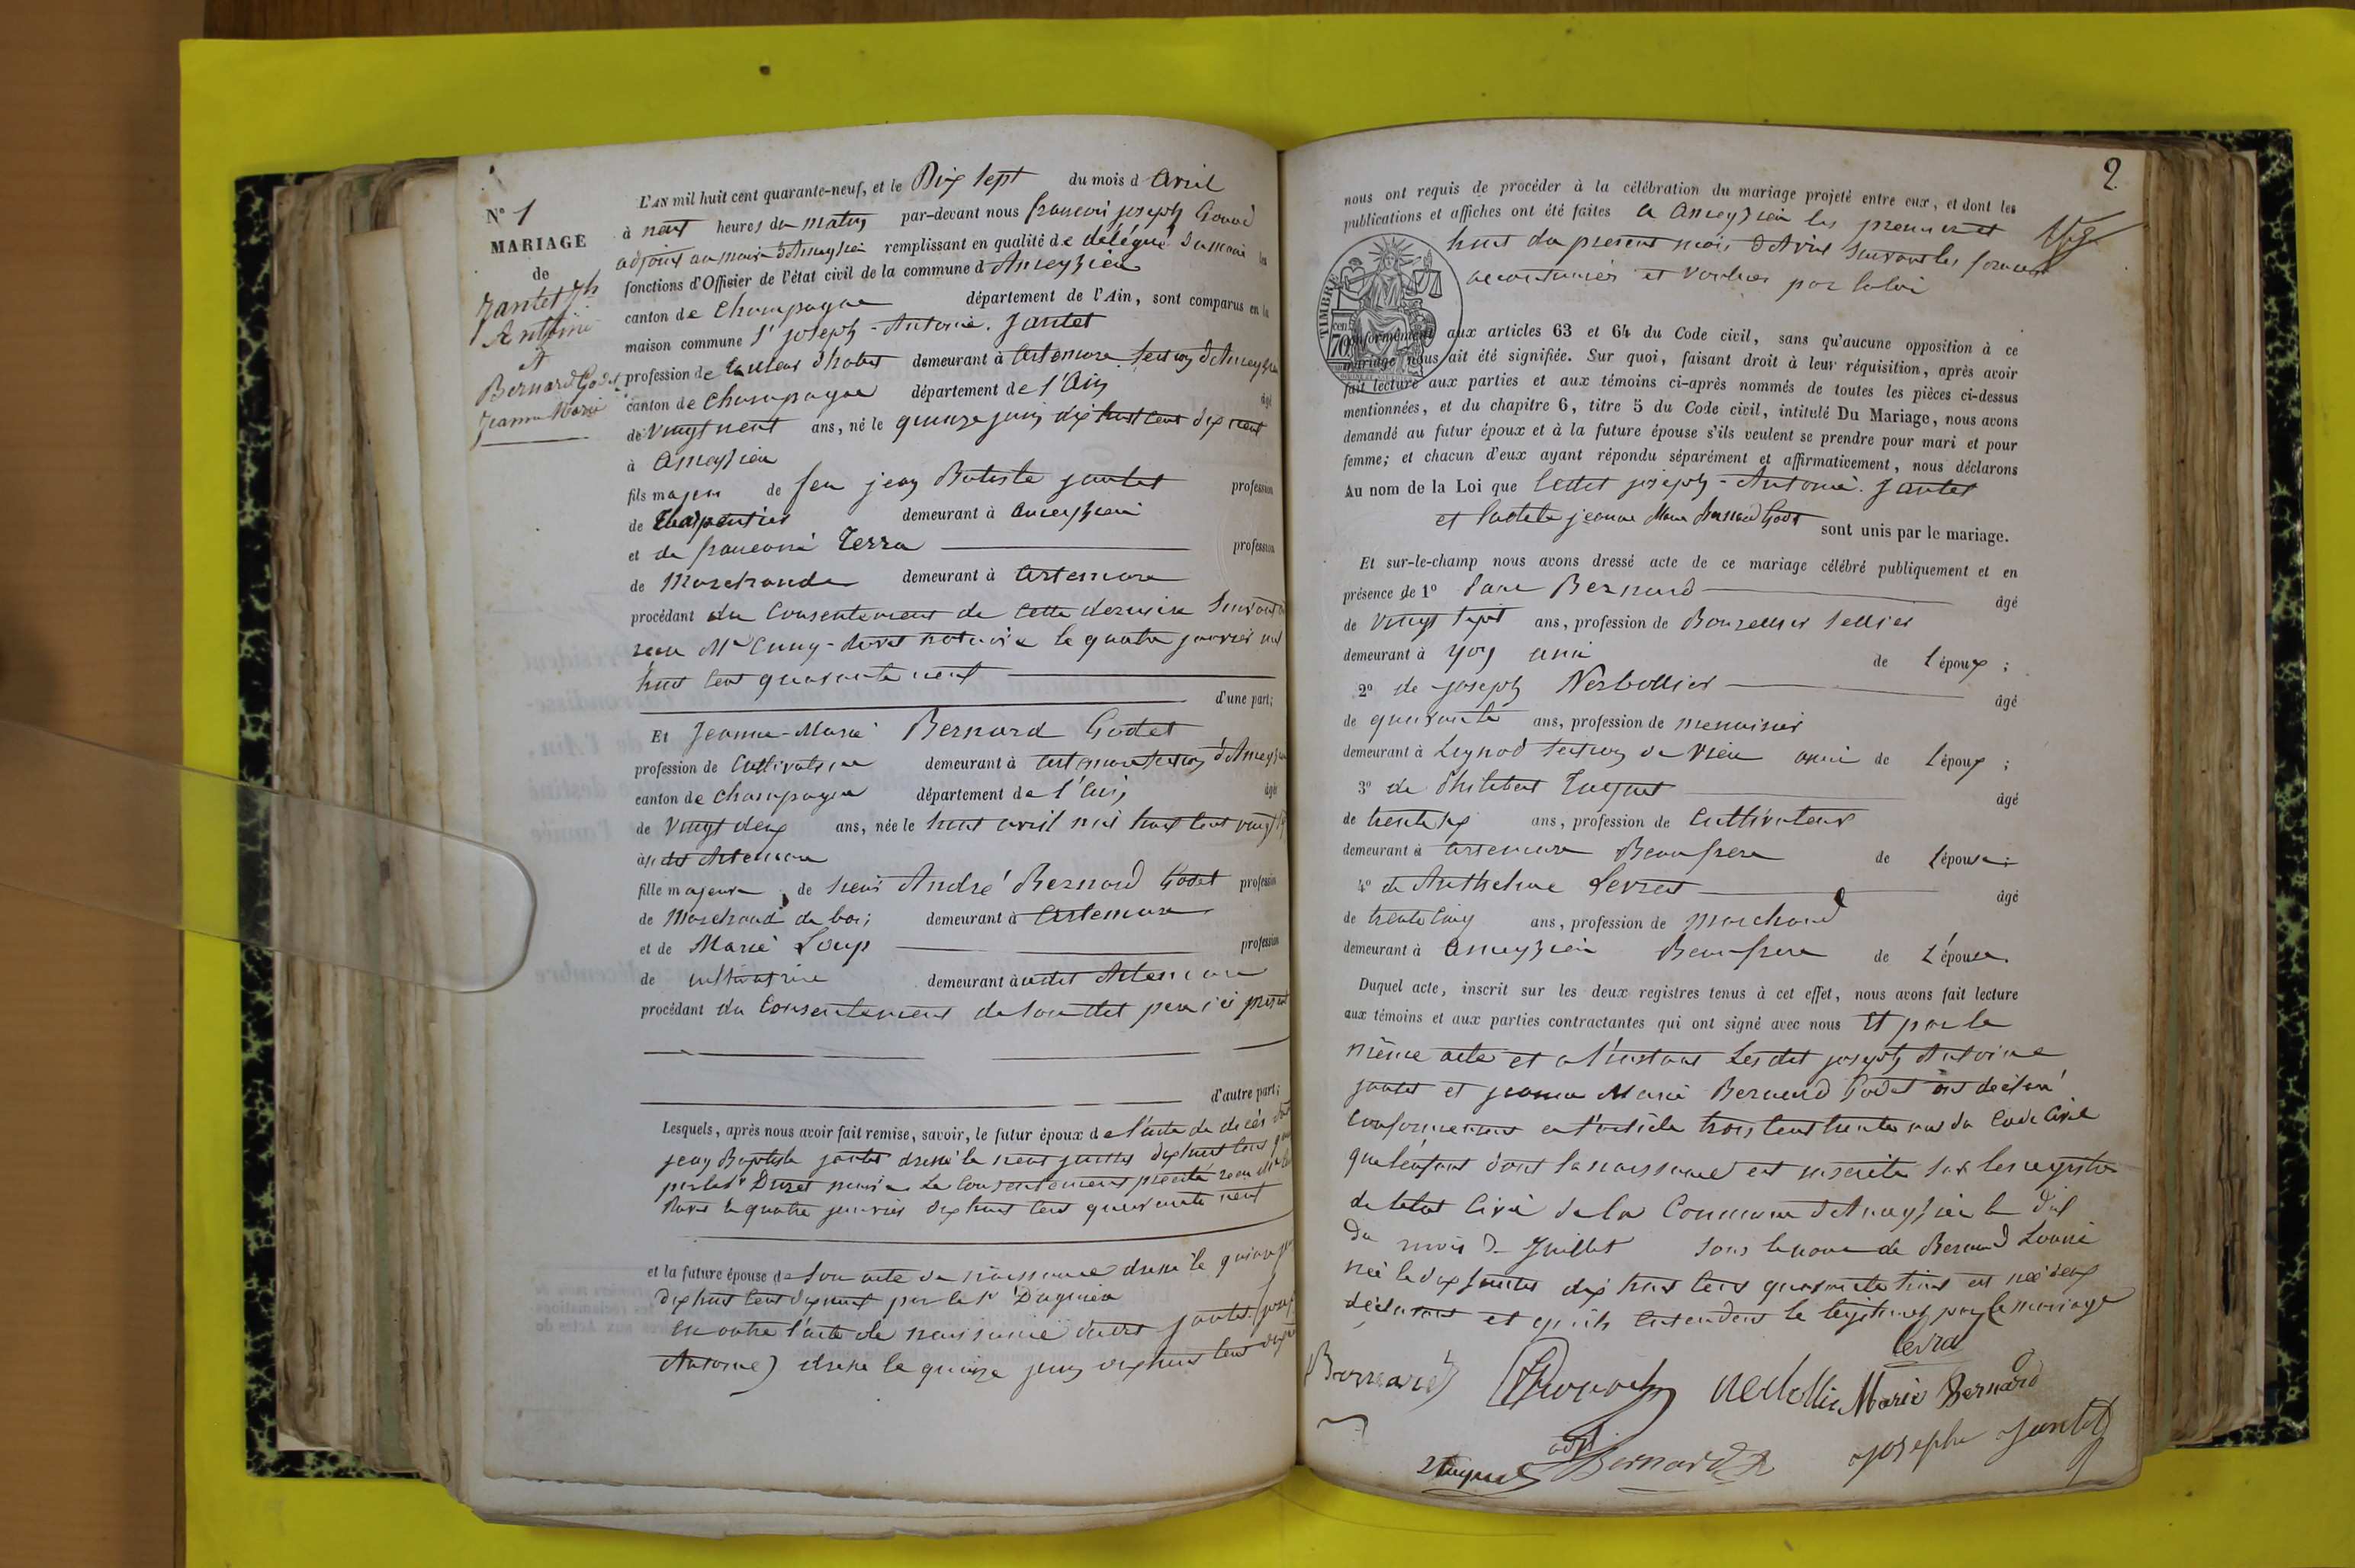 N° 1
MARIAGE
de
Jantet Jh
Antoine
et
Bernard Godet
Jeanne Marie
L'AN mil huit cent quarante-neuf, et le Dix sept du mois d avril
à neuf heures du matin par-devant nous françois joseph
adjoint au maire d'Ameyzieu remplissant en qualité de délégué du maire les
fonctions d'Officier de l'état civil de la commune d Ameyzieu
canton de Champagne département de l'Ain, sont comparus en la
maison commune Sr joseph-Antoine Jantet
profession de tailleur d'habits demeurant à Artemare section d'Ameyzieu
canton de Champagne département de l'Ain âgé
de vingt neuf ans, né le quinze juin dix huit cent dix neuf
à Ameyzieu
fils majeur de feu jean Batiste jantet profession
de Charpentier demeurant à Ameyzieu
et de françoise Terra profession
de Marchande demeurant à Artemare
procédant du Consentement de cette dernière suivant
reçu Me Cuny- notaire le quatre janvier mil
huit cent quarante neuf
d'une part;
Et Jeanne-Marie Bernard Godet
profession de Cultivatrice demeurant à Artemare section d'Ameyzieu
canton de Champagne département de l'Ain âgée
de vingt deux ans, née le huit avril mil huit cent vingt
à udit Artemare
fille majeure de sieur André Bernard Godet profession
de Marchand de bois demeurant à Artemare
et de Marie Loup profession
de cultivatrice demeurant à udit Artemare
procédant du Consentement de son dit père ici présent
d'autre part;
Lesquels, après nous avoir fait remise, savoir, le futur époux de l'acte de décès
jean Baptiste jantet dressé le neuf dix huit cent
par le Sr maire Le consentement précité reçu
le quatre janvier dix huit cent quarante neuf
et la future épouse de son acte de naissance dressé le
dix huit cent par le Sr
En outre l'acte de naissance dudit jantet (joseph
Antoine) dressé le quinze juin dix huit cent dix neuf
2
nous ont requis de procéder à la célébration du mariage projeté entre eux, et dont les
publications et affiches ont été faites à Ameyzieu les premier et
huit du présent mois d'Avril suivant les formes
accoutumées et voulues par la loi
TIMBRE
70 cen
Conformément aux articles 63 et 64 du Code civil, sans qu'aucune opposition à ce
mariage nous ait été signifiée. Sur quoi, faisant droit à leur réquisition, après avoir
fait lecture aux parties et aux témoins ci-après nommés de toutes les pièces ci-dessus
mentionnées, et du chapitre 6, titre 5 du Code civil, intitulé Du Mariage, nous avons
demandé au futur époux et à la future épouse s'ils veulent se prendre pour mari et pour
femme; et chacun d'eux ayant répondu séparément et affirmativement, nous déclarons
Au nom de la Loi que ledit joseph-Antoine Jantet
et ladite jeanne Marie Bernard Godet sont unis par le mariage.
Et sur-le-champ nous avons dressé acte de ce mariage célébré publiquement et en
présence de 1° Bernard âgé
de vingt sept ans, profession de Bourellier sellier
demeurant à yon ami de l'époux;
2° de joseph Nerbollier âgé
de quarante ans, profession de menuisier
demeurant à Luynod section de Vieu ami de l'époux;
3° de Philibert Tuquet âgé
de trente six ans, profession de Cultivateur
demeurant à Artemare Beau frère de l'épouse;
4° de Anthelme Levrat âgé
de trente cinq ans, profession de marchand
demeurant à Ameyzieu Beau frère de L'épouse.
Duquel acte, inscrit sur les deux registres tenus à cet effet, nous avons fait lecture
aux témoins et aux parties contractantes qui ont signé avec nous Et par le
même acte et à l'instant Les dit joseph Antoine
jantet et jeanne Marie Bernard Godet ont déclaré
Conformément à l'article trois cent trente un du Code Civil
que l'enfant dont la naissance est inscrite sur les registres
de l'état Civil de la Commune d'Ameyzieu le dix
du mois de Juillet sous le nom de Bernard Louise
née le dix juillet dix huit cent quarante trois est née d'eux
déclarants et qu'ils entendent le légitimer par le mariage
Levrat
Bernard Nerbollier Marie Bernard
adjt
Tuquet Bernard joseph Jantet